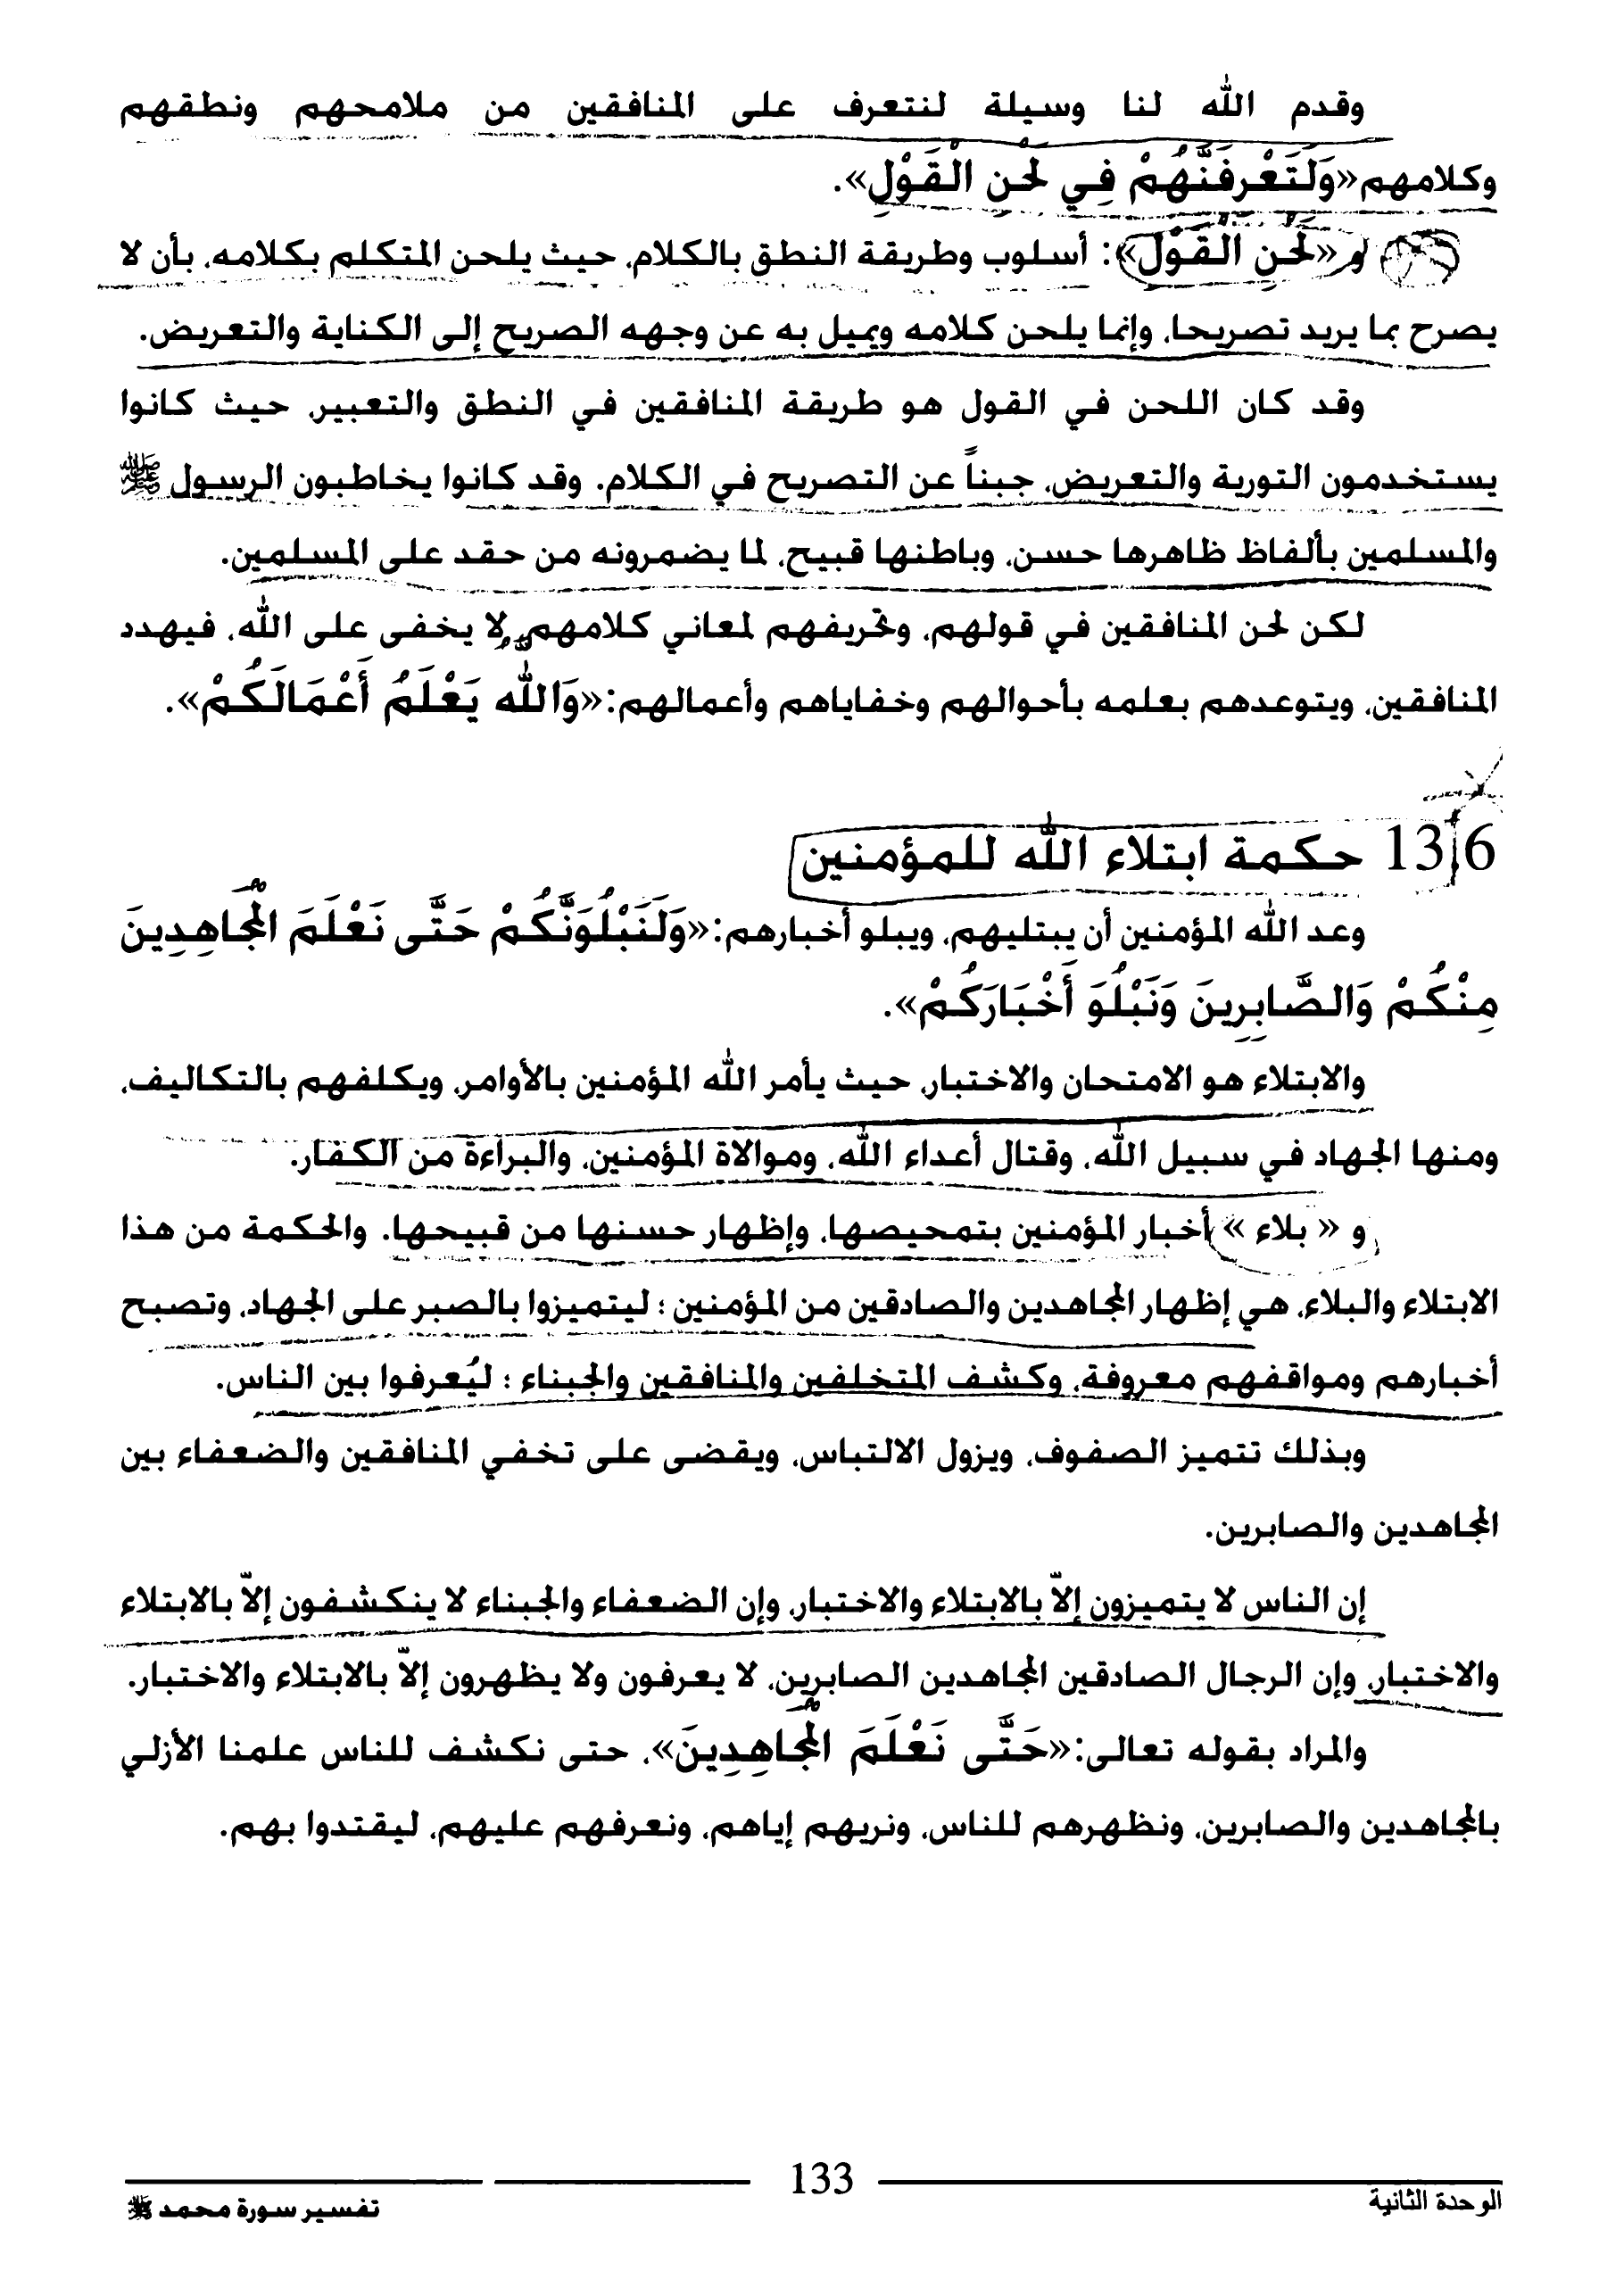 وقدم الله لنا وسيلة لنتعرف على المنافقين من ملامحهم ونطقهم
وكلامهم«وَلَتَعْرِفَنَّهُمْ فِي لَحْنِ الْقَوْلِ».
و«لَحْنِ الْقَوْلِ»: أسلوب وطريقة النطق بالكلام، حيث يلحن المتكلم بكلامه، بأن لا
يصرح بما يريد تصريحا، وإنما يلحن كلامه ويميل به عن وجهه الصريح إلى الكناية والتعريض.
وقد كان اللحن في القول هو طريقة المنافقين في النطق والتعبير، حيث كانوا
يستخدمون التورية والتعريض، جبناً عن التصريح في الكلام. وقد كانوا يخاطبون الرسول ﷺ
والمسلمين بألفاظ ظاهرها حسن، وباطنها قبيح، لما يضمرونه من حقد على المسلمين.
لكن لحن المنافقين في قولهم، وتحريفهم لمعاني كلامهم لا يخفى على الله، فيهدد
المنافقين، ويتوعدهم بعلمه بأحوالهم وخفاياهم وأعمالهم:«وَالله يَعْلَمُ أَعْمَالَكُمْ».
13/6 حكمة ابتلاء الله للمؤمنين
وعد الله المؤمنين أن يبتليهم، ويبلو أخبارهم:«وَلَنَبْلُوَنَّكُمْ حَتَّى نَعْلَمَ الْمُجَاهِدِينَ
مِنْكُمْ وَالصَّابِرِينَ وَنَبْلُوَ أَخْبَارَكُمْ».
والابتلاء هو الامتحان والاختبار، حيث يأمر الله المؤمنين بالأوامر، ويكلفهم بالتكاليف،
ومنها الجهاد في سبيل الله، وقتال أعداء الله، وموالاة المؤمنين، والبراءة من الكفار.
و « بلاء » أخبار المؤمنين بتمحيصها، وإظهار حسنها من قبيحها. والحكمة من هذا
الابتلاء والبلاء، هي إظهار المجاهدين والصادقين من المؤمنين ؛ ليتميزوا بالصبر على الجهاد، وتصبح
أخبارهم ومواقفهم معروفة، وكشف المتخلفين والمنافقين والجبناء ؛ ليُعرفوا بين الناس.
وبذلك تتميز الصفوف، ويزول الالتباس، ويقضى على تخفي المنافقين والضعفاء بين
المجاهدين والصابرين.
إن الناس لا يتميزون إلاّ بالابتلاء والاختبار، وإن الضعفاء والجبناء لا ينكشفون إلاّ بالابتلاء
والاختبار، وإن الرجال الصادقين المجاهدين الصابرين، لا يعرفون ولا يظهرون إلاّ بالابتلاء والاختبار.
والمراد بقوله تعالى:«حَتَّى نَعْلَمَ الْمُجَاهِدِينَ»، حتى نكشف للناس علمنا الأزلي
بالمجاهدين والصابرين، ونظهرهم للناس، ونريهم إياهم، ونعرفهم عليهم، ليقتدوا بهم.
133
الوحدة الثانية
تفسير سورة محمد ﷺ